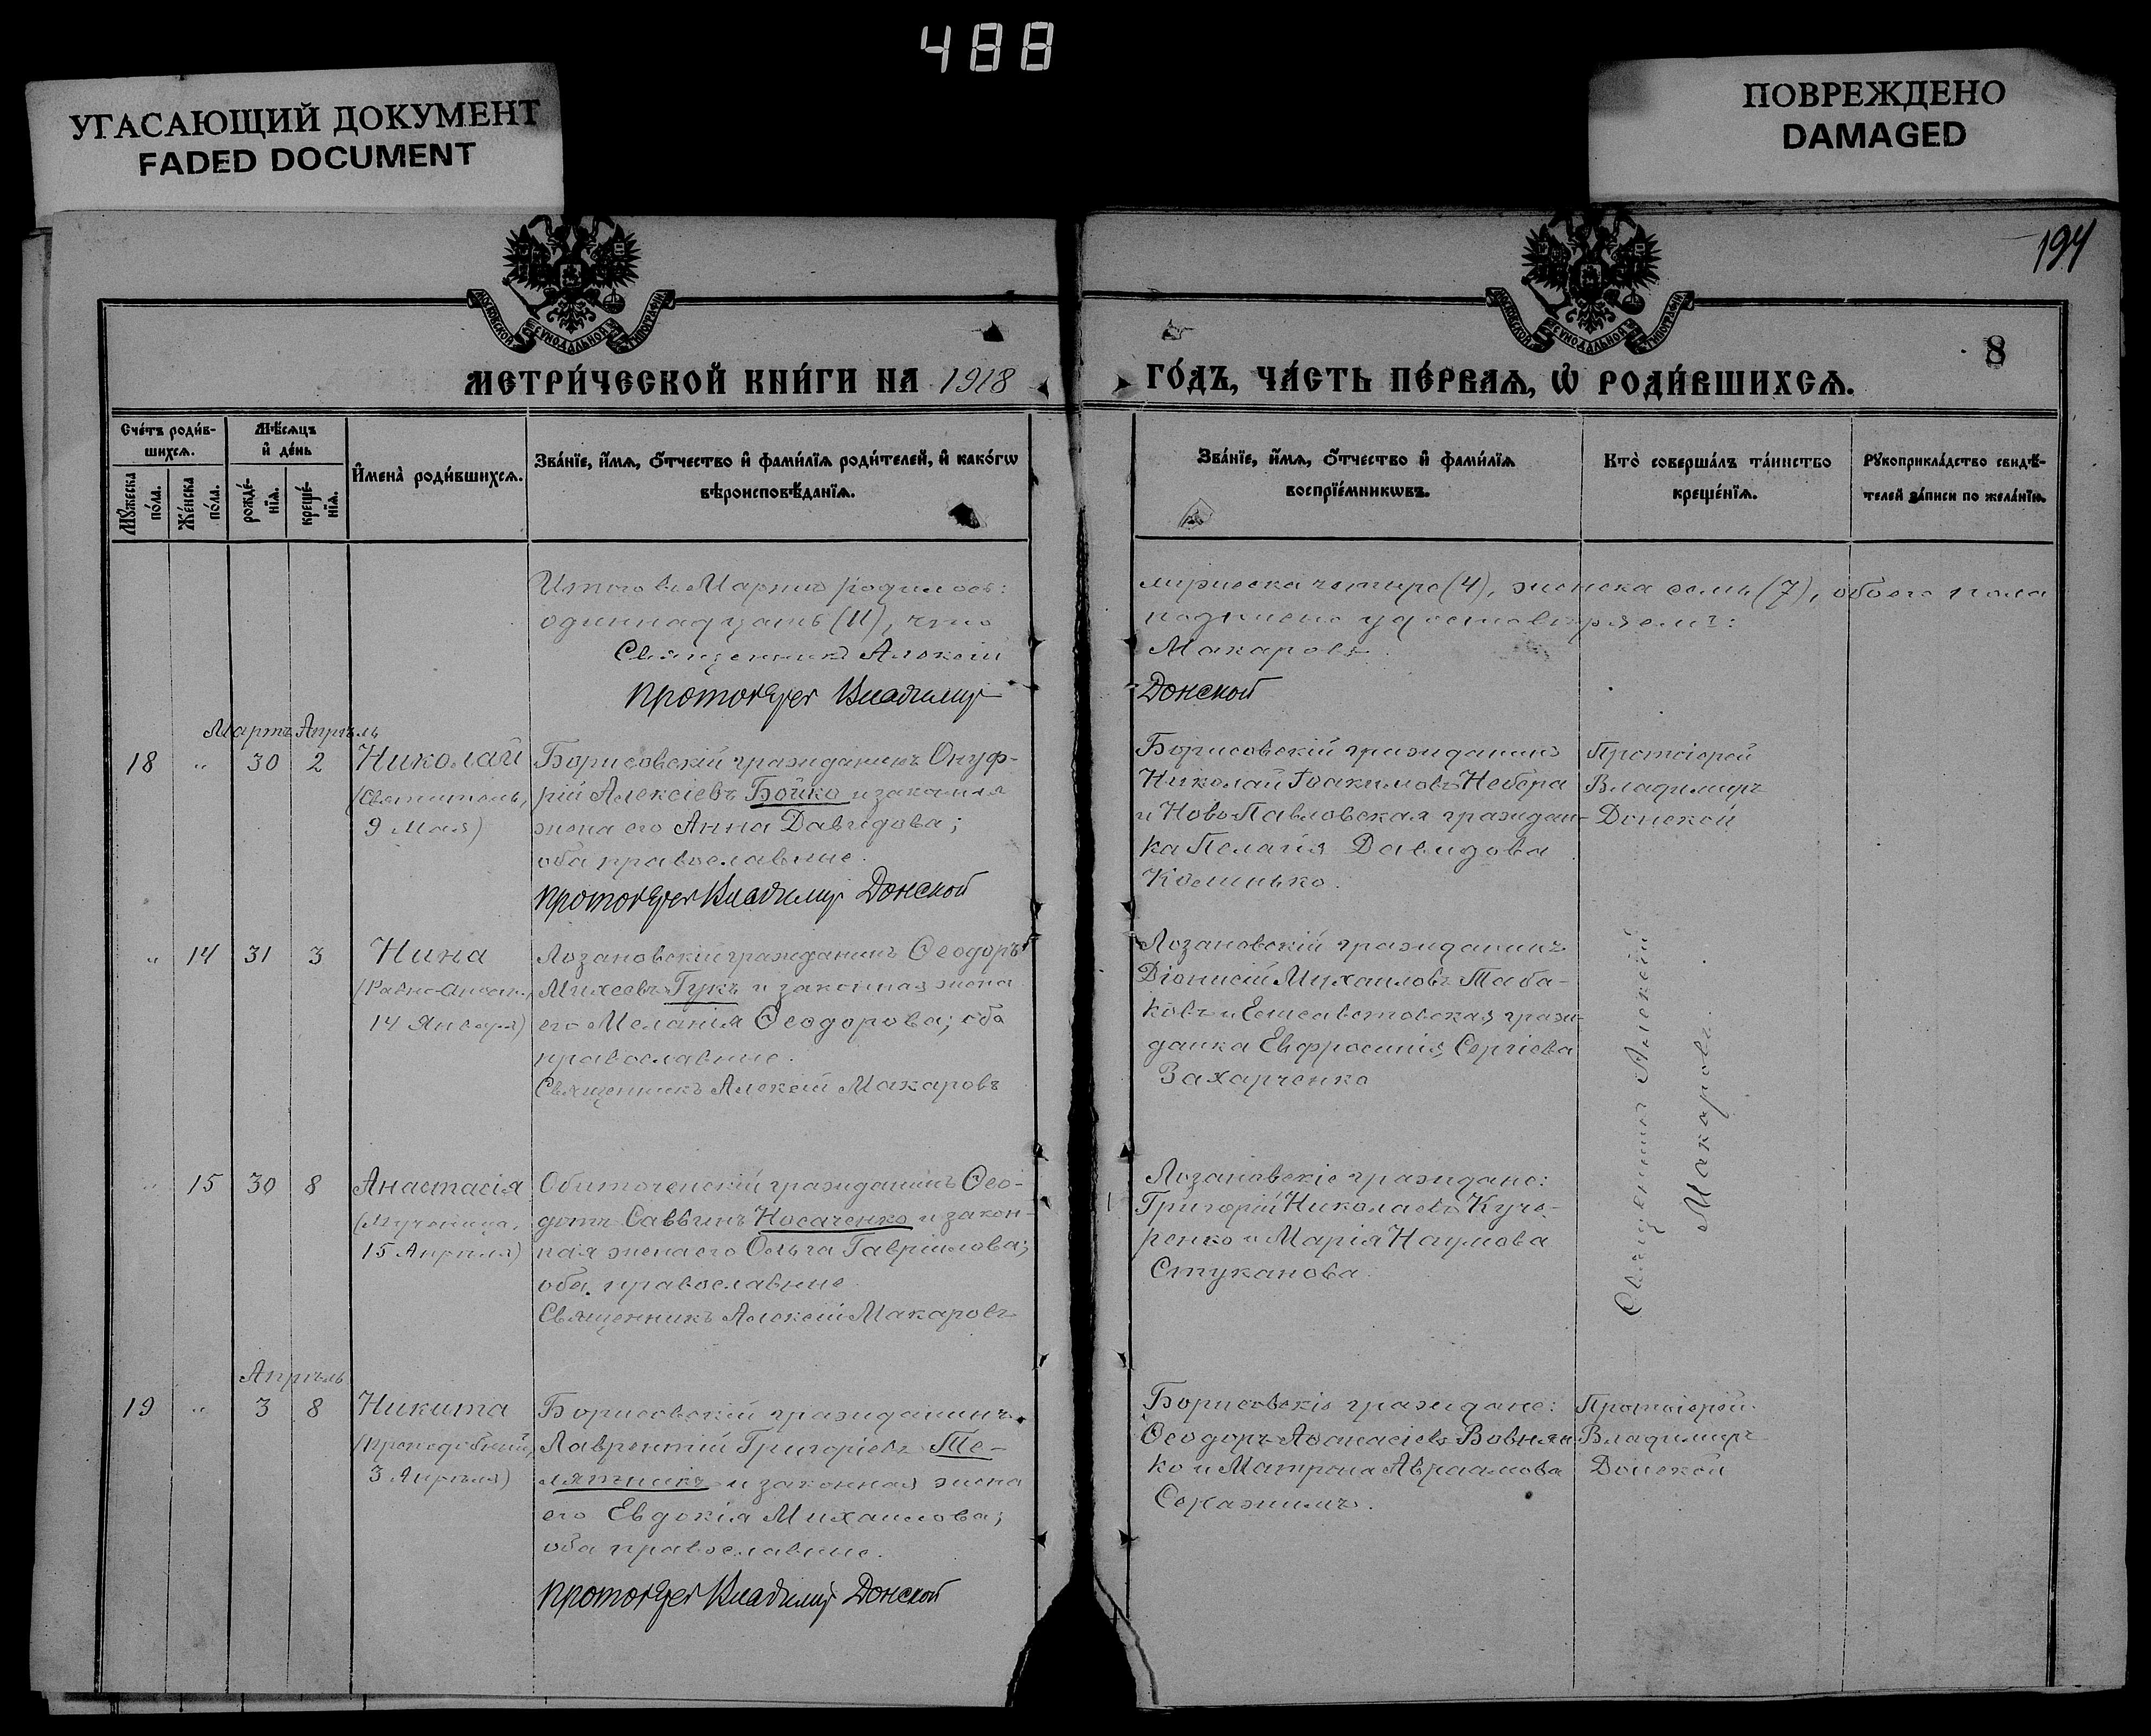 488
УГАСАЮЩИЙ ДОКУМЕНТ
FADED DOCUMENT
ПОВРЕЖДЕНО
DAMAGED
194
МОСКОВСКОЙ СУНОДАЛЬНОЙ ТИПОГРАФІИ
МОСКОВСКОЙ СУНОДАЛЬНОЙ ТИПОГРАФІИ
8
МЕТРИ́ЧЕСКОЙ КНИ́ГИ НА 1918
ГО́ДЪ, ЧА́СТЬ ПЕ́РВАѦ, Ѡ҆ РОДИ́ВШИХСѦ.
Сче́тъ роди́в-
шихсѧ.
Мꙋ́жеска по́ла.
Же́нска по́ла.
Мѣ́сѧцъ
и҆ де́нь
рожде́-нїѧ.
креще́-нїѧ.
И҆мена̀ роди́вшихсѧ.
Зва́нїе, и҆́мѧ, ѻ҆́тчество и҆ фами́лїѧ роди́телей, и҆ како́гѡ
вѣроисповѣ́данїѧ.
Зва́нїе, и҆́мѧ, ѻ҆́тчество и҆ фами́лїѧ
воспрїе́мникѡвъ.
Кто̀ соверша́лъ та́инство
креще́нїѧ.
Рꙋкоприкла́дство свидѣ́-
телей за́писи по жела́нїю.
Итого въ Мартѣ родилось:
одиннадцать (11), что
Священникъ Алексій
Протоіерей Владимир
мужеска четыре (4), женска семь (7), обоего пола
подписью удостовѣряемъ:
Макаровъ.
Донской
Мартъ Апрѣль
18 " 30 2 Николай
(Святитель,
9 Мая)
Борисовскій гражданинъ Онуф-
рій Алексіевъ Бойко и законная
жена его Анна Давидова;
оба православные.
Протоіерей Владимир Донской
Борисовскій гражданинъ
Николай Іоакимовъ Небера
и Ново-Павловская граждан-
ка Пелагія Давидова
Протоіерей
Владимиръ
Донской
" 14 31 3 Нина
(Равно-Апост.,
14 Января)
Лозановскій гражданинъ Ѳеодоръ
Михеевъ Гукъ и законная жена
его Меланія Ѳеодорова; оба
православные.
Священникъ Алексій Макаровъ
Лозановскій гражданинъ
Діонисій Михаиловъ Таба-
ковъ и Елисаветовская граж-
данка Евфросинія Сергіева
Захарченко
Священникъ Алексій
Макаровъ.
" 15 30 8 Анастасія
(Мученица,
15 Апрѣля)
Обиточенскій гражданинъ Ѳео-
дотъ Саввинъ Носаченко и закон-
ная жена его Ольга Гавріилова;
оба православные.
Священникъ Алексій Макаровъ
Лозановскіе граждане:
Григорій Николаевъ Куче-
ренко и Марія Наумова
Стуканова.
Апрѣль
19 " 3 8 Никита
(Преподобный,
3 Апрѣля)
Борисовскій гражданинъ
Лаврентій Григоріевъ Те-
лятникъ и законная жена
его Евдокія Михаилова;
оба православные.
Протоіерей Владимир Донской
Борисовскіе граждане:
Ѳеодоръ Аѳанасіевъ Вовнян-
ко и Матрона Авраамова
Протоіерей
Владимиръ
Донской